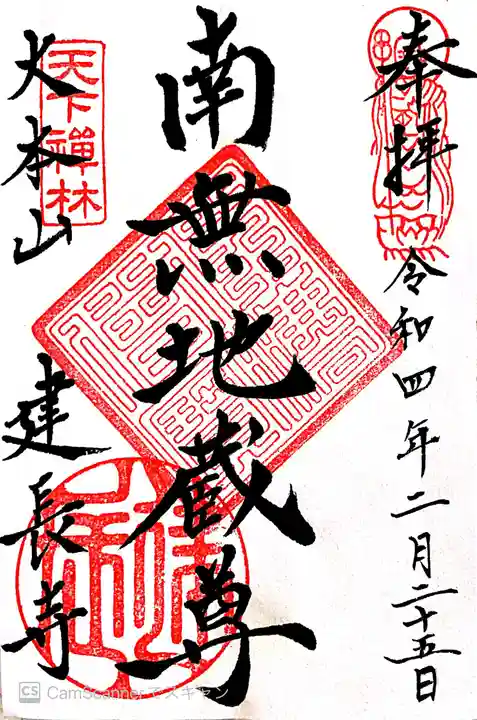 奉拝
令和四年二月二十五日
南無地蔵尊
天下禅林
大本山
建長寺
CS CamScanner でスキャン